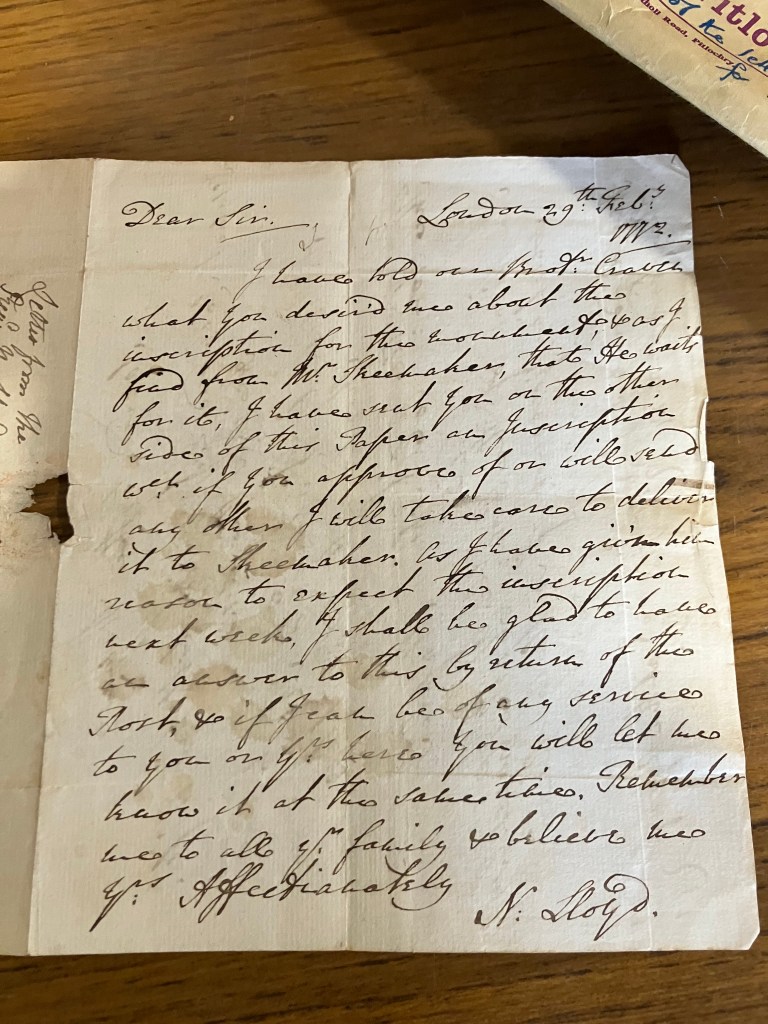 Dear Sir.
London 29th Feby
1772.
I have told our Brotr. Craven
what You desir'd me about the
inscription for the monument, & as I
find from Mr. Skeemaker, that He waits
for it, I have sent You on the other
side of this Paper an Inscription
wch. if You approve of or will send
any other I will take care to deliver
it to Skeemaker. As I have given him
reason to expect the inscription
next week, I shall be glad to have
an answer to this by return of the
Post, & if I can be of any service
to You or Yrs. here You will let me
know it at the same time. Remember
me to all yr. family & believe me
Yrs. Affectionately
N: Lloyd.
Letter from the
itlo
Road, Pitlochry